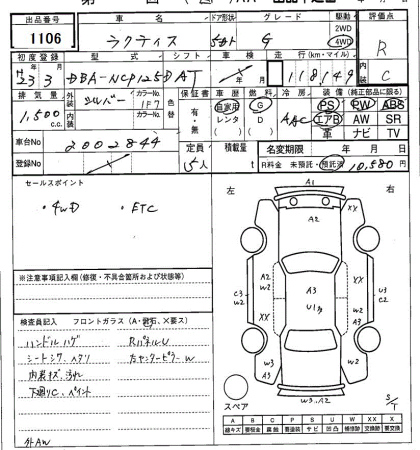 出品番号 車名 ドア形状 グレード 駆動 評価点
1106 ラクティス 5ドア G 2WD 4WD R
初度登録 型式 シフト 車検 走行(km・マイル) C
H23 3 DBA-NCP125 AT 118,149
排気量 外装 カラーNo. 色替 保証書 車歴 燃料 冷房 装備(純正部品に限る)
1,500 c.c. シルバー 1F7 有・無 自家用 レンタ G D AAC PS PW ABS
エアB AW SR
革 ナビ TV
車台No 2002844 定員 積載量 名変期限 年 月 日
登録No 5人 t R料金 未預託・預託済 10,580円
セールスポイント
・4WD ・ETC
左 右
A1
A2
XX XX
A2 W2
C3 W2
A3
U1カ
U3 C2
XX XX
W3 A3
W2 A3
W3.A2
※注意事項記入欄(修復・不具合箇所および状態等)
検査員記入 フロントガラス(A・飛石、X要ス)
ハンドルハゲ RパネルU
シートシワ、ヘタリ 左センターピラーW
内装キズ、汚れ
下廻りC、ペイント
外AW
スペア
S/T
A B C P S U W X XX
線キズ 要板金 腐食 要塗装 サビ 凹凸 補修跡 要交換 交換済